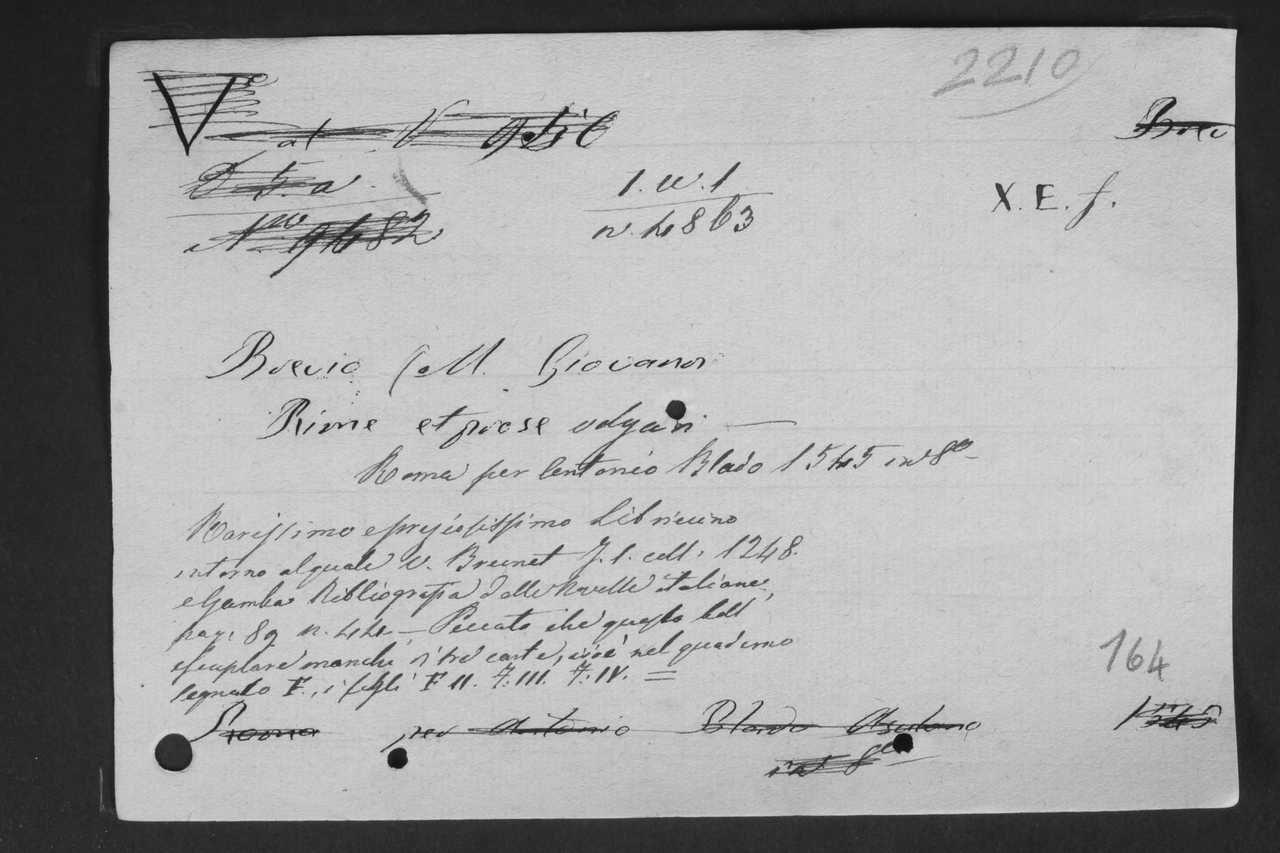 2210
V
Brev
1. w. 1
X. E. f.
n. 4863
Brevio (M. Giovanni
Rime et prose volgari —
Roma per Antonio Blado 1545 in 8º
Rarissimo e preziosissimo libriccino
intorno al quale v. Brunet T. 1. coll. 1248.
e Gamba Bibliografia delle Novelle italiane,
pag. 89 n. 44 — Peccato che questo bell'
esemplare manchi di tre carte, cioè nel quaderno
segnato F., i fogli F II. F. III. F. IV. =
164
Roma per Antonio Blado Asolano 1545
in 8º